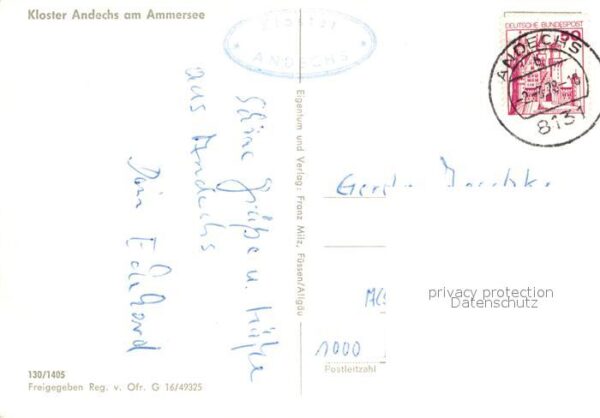 Kloster Andechs am Ammersee
Kloster
ANDECHS
DEUTSCHE BUNDESPOST
ANDECHS
8131
Schöne Grüße u. Küße
aus Andechs
Dein Eckhard
Eigentum und Verlag: Franz Milz, Füssen/Allgäu
privacy protection
Datenschutz
1000
Postleitzahl
130/1405
Freigegeben Reg. v. Ofr. G 16/49325